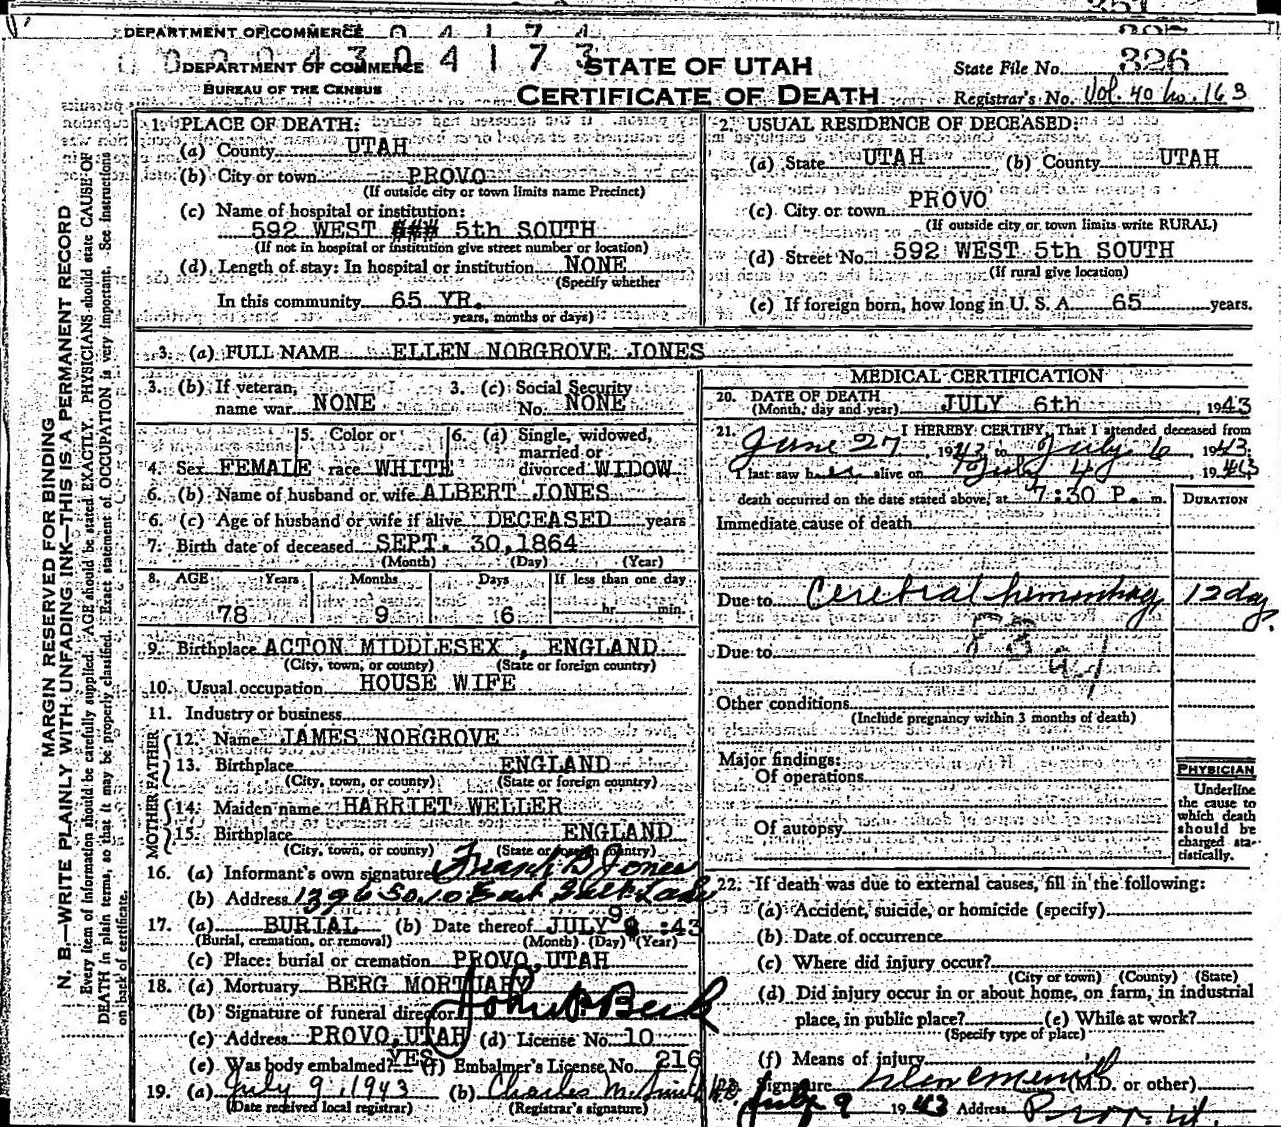 DEPARTMENT OF COMMERCE 0 4 1 7 4
0 0 0 4 3 0 4 1 7 3
DEPARTMENT OF COMMERCE
BUREAU OF THE CENSUS
STATE OF UTAH
CERTIFICATE OF DEATH
State File No. 326
Registrar's No. Vol. 40 No. 163
MARGIN RESERVED FOR BINDING
N. B.—WRITE PLAINLY WITH UNFADING INK—THIS IS A PERMANENT RECORD
Every item of information should be carefully supplied. AGE should be stated EXACTLY. PHYSICIANS should state CAUSE OF
DEATH in plain terms, so that it may be properly classified. Exact statement of OCCUPATION is very important. See instructions
on back of certificate.
1. PLACE OF DEATH:
(a) County UTAH
(b) City or town PROVO
(If outside city or town limits name Precinct)
(c) Name of hospital or institution:
592 WEST 5th SOUTH
(If not in hospital or institution give street number or location)
(d) Length of stay: In hospital or institution NONE
(Specify whether
In this community 65 YR.
years, months or days)
2. USUAL RESIDENCE OF DECEASED:
(a) State UTAH (b) County UTAH
(c) City or town PROVO
(If outside city or town limits write RURAL)
(d) Street No. 592 WEST 5th SOUTH
(If rural give location)
(e) If foreign born, how long in U. S. A. 65 years.
3. (a) FULL NAME ELLEN NORGROVE JONES
3. (b) If veteran, name war NONE
3. (c) Social Security No. NONE
4. Sex FEMALE
5. Color or race WHITE
6. (a) Single, widowed, married or divorced WIDOW
6. (b) Name of husband or wife ALBERT JONES
6. (c) Age of husband or wife if alive DECEASED years
7. Birth date of deceased SEPT. 30,1864
(Month) (Day) (Year)
8. AGE Years Months Days If less than one day
78 9 6 hr. min.
9. Birthplace ACTON MIDDLESEX, ENGLAND
(City, town, or county) (State or foreign country)
10. Usual occupation HOUSE WIFE
11. Industry or business
FATHER
12. Name JAMES NORGROVE
13. Birthplace ENGLAND
(City, town, or county) (State or foreign country)
MOTHER
14. Maiden name HARRIET WELLER
15. Birthplace ENGLAND
(City, town, or county) (State or foreign country)
16. (a) Informant's own signature Frank B Jones
(b) Address 1396 So. 10 East Salt Lake
17. (a) BURIAL (b) Date thereof JULY 9 :43
(Burial, cremation, or removal) (Month) (Day) (Year)
(c) Place: burial or cremation PROVO, UTAH
18. (a) Mortuary BERG MORTUARY
(b) Signature of funeral director
(c) Address PROVO, UTAH (d) License No. 10
(e) Was body embalmed? YES (f) Embalmer's License No. 216
19. (a) July 9, 1943 (b) Charles M. Smith M.D.
(Date received local registrar) (Registrar's signature)
MEDICAL CERTIFICATION
20. DATE OF DEATH
(Month, day and year) JULY 6th, 1943
21. I HEREBY CERTIFY, That I attended deceased from
June 27, 1943 to July 6, 1943.
I last saw her alive on July 4, 1943
death occurred on the date stated above, at 7:30 P. m.
DURATION
Immediate cause of death
Due to Cerebral hemorrhage 12 day.
Due to
83 a
Other conditions
(Include pregnancy within 3 months of death)
Major findings:
Of operations
Of autopsy
PHYSICIAN
Underline
the cause to
which death
should be
charged sta-
tistically.
22. If death was due to external causes, fill in the following:
(a) Accident, suicide, or homicide (specify)
(b) Date of occurrence
(c) Where did injury occur?
(City or town) (County) (State)
(d) Did injury occur in or about home, on farm, in industrial
place, in public place? (e) While at work?
(Specify type of place)
(f) Means of injury
23. Signature (M.D. or other)
July 9 1943 Address Provo, Ut.